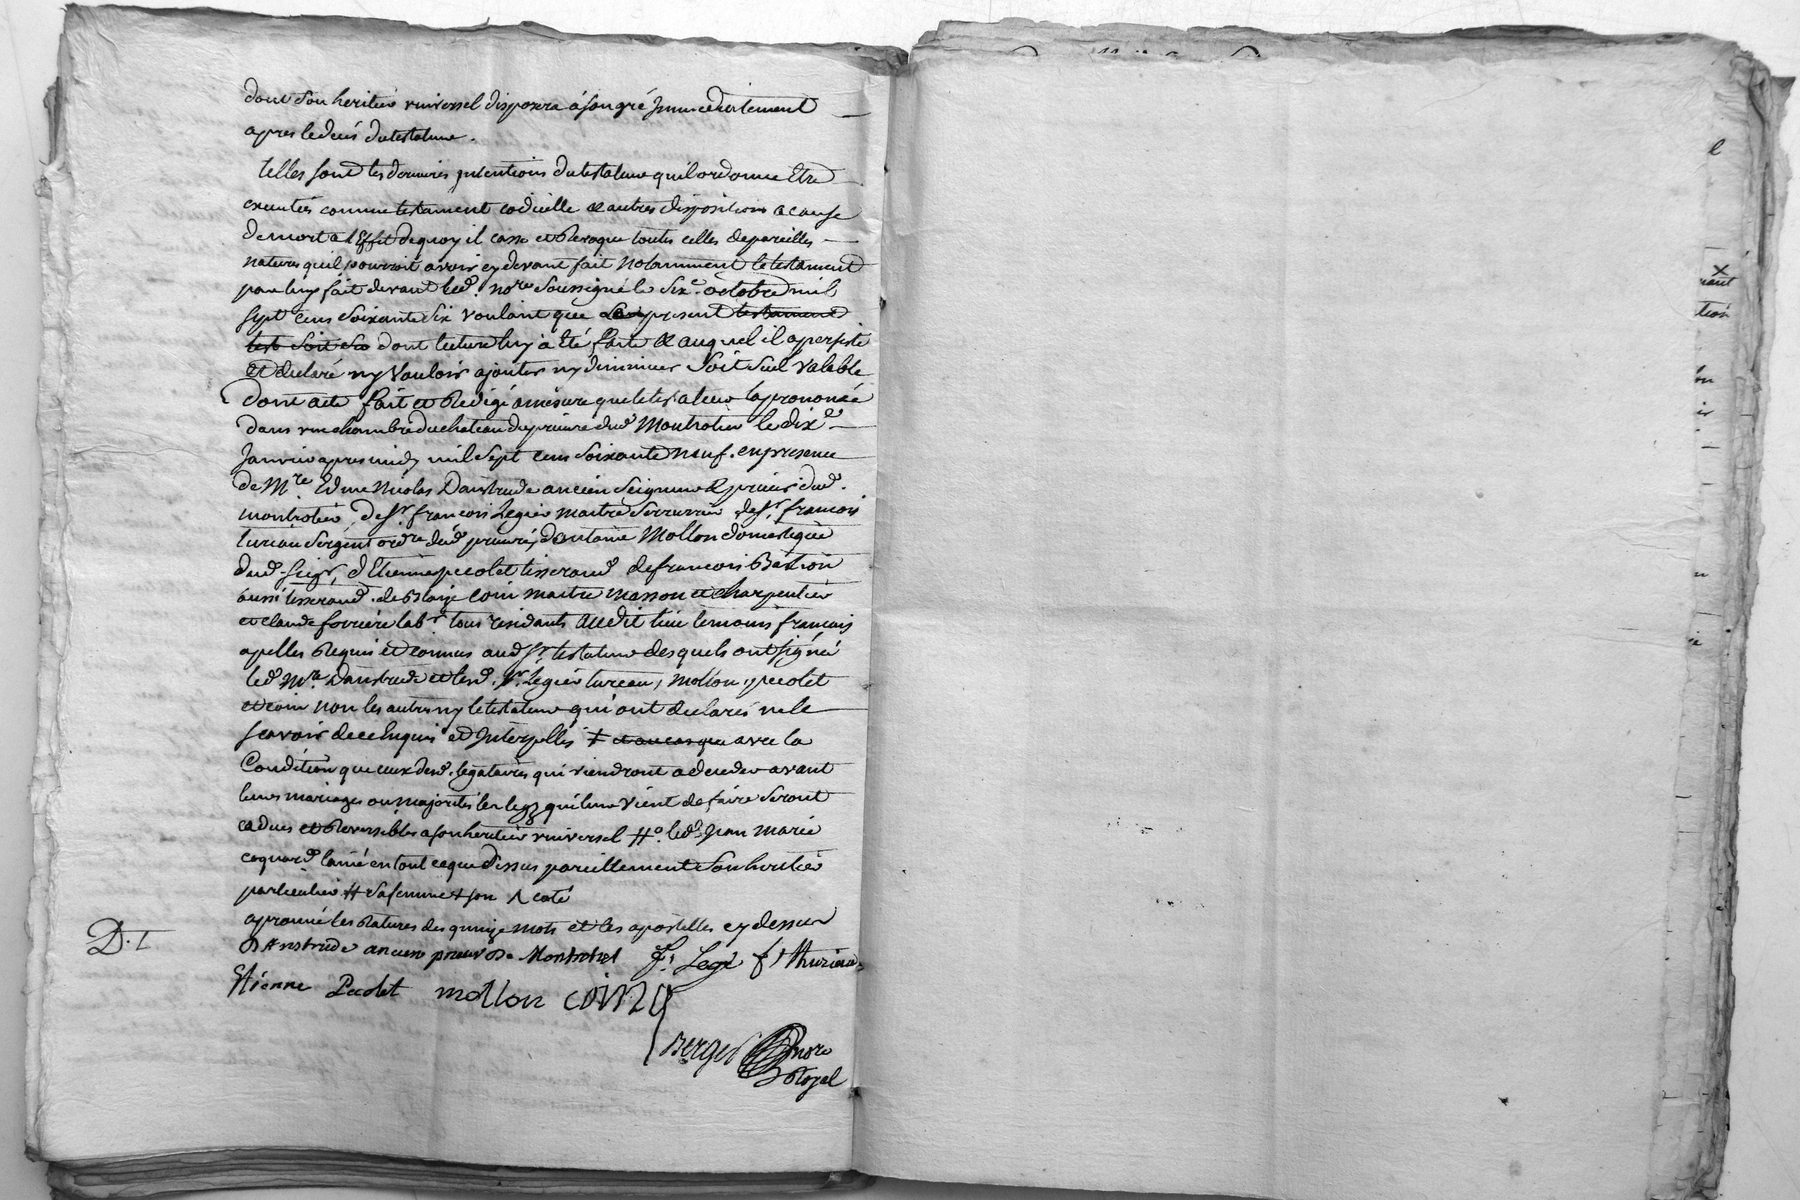 dont son heritier universel disposera à son gré immediatement
apres le decés du testateur.
telles sont les dernieres intentions du testateur qu'il ordonne être
executées comme testament codicille & autres dispositions a cause
de mort a l'Effet de quoy il casse et revoque toutes celles de pareilles
natures qu'il pourroit avoir cy devant fait notamment le testament
par luy fait devant led. nore soussigné le sixe. octobre mil
sept cens soixante six voulant que le present testament
dont lecture luy a été faite & auquel il a persisté
et declaré ny vouloir ajouter ny diminuer soit seul valable
dont acte fait et redigé a mesure que le testateur l'a prononcé
dans une chambre du chateau du prieuré dud Montrotier le dixe
janvier apres midy mil sept cens soixante neuf. en presence
de Mre. Edme Nicolas Danstrude ancien seigneur & prieur dud.
montrotier, de sr. francois Legier maitre serrurier, de sr. francois
turéau sergent ordre. dud prieuré, d'antoine Mollon domestique
dud. seigr, d'Etienne pecolet tisserand de francois Bastion
aussi tisserand. de Blaize Coin maitre masson et charpentier
et claude forriere labr. tous residants audit lieu temoins francois
apellés requis et connus aud sr. testateur desquels ont signé
led. Mre. Danstrude et lesd. srs. Legier tureau, mollon, pecolet
et coin non les autres ny le testateur qui ont declarés ne le
scavoir de ce enquis et Interpellés ‡ et au cas que avec la
Condition que ceux desd. legataires qui viendront a deceder avant
leurs mariages ou majorités les legs qu'il leur vient de faire seront
caducs et reversibles a son heritier universel #o. led. jean marie
coquard l'ainé en tout ce que dessus pareillement son heritier
particulier # sa femme + son ^ coté
aprouvé les ratures des quinze mots et les apostilles cy dessus
D. T
D'Anstrude ancien prieur De Montrotier fs Legé fs thuriau
Etienne Pecolet mollon coin
Berger nore
Royal